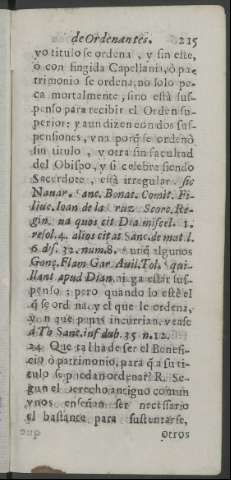 de Ordenantes. 215
yo titulo se ordena, y sin este,
ò con fingida Capellania, ò pa-
trimonio se ordena, no solo pe-
ca mortalmente, sino está sus-
penso para recibir el Orden su-
perior: y aun dizen con dos sus-
pensiones, vna porq̃ se ordenò
sin titulo, y otra sin facultad
del Obispo, y si celebra siendo
Sacerdote, está irregular. sic
Nauar. Sanc. Bonac. Comit. Fi-
liuc. Ioan de la Cruz Score, Re-
gin. quos cit Dia miscel. 1.
resol. 4. alios citat Sanc. de mat l.
6 32. num. 8. aunq̃ algunos
Gonç. Flam Gar. Auil. Tol. qui-
llant apud Dian. niegã estár sus-
penso; pero quando lo esté el
q̃ se ordena, y el que le ordena,
y en que penas incurrian, vease
à To Sanc. inf dub. 35 n. 12.
24 Que tal ha de ser el Benefi-
cio ò patrimonio, para q̃ a su ti-
tulo se puedan ordenar? R. Se-
gun el derecho antiguo comun
vnos enseñan ser necessario
el bastante para sustentarse,
otros